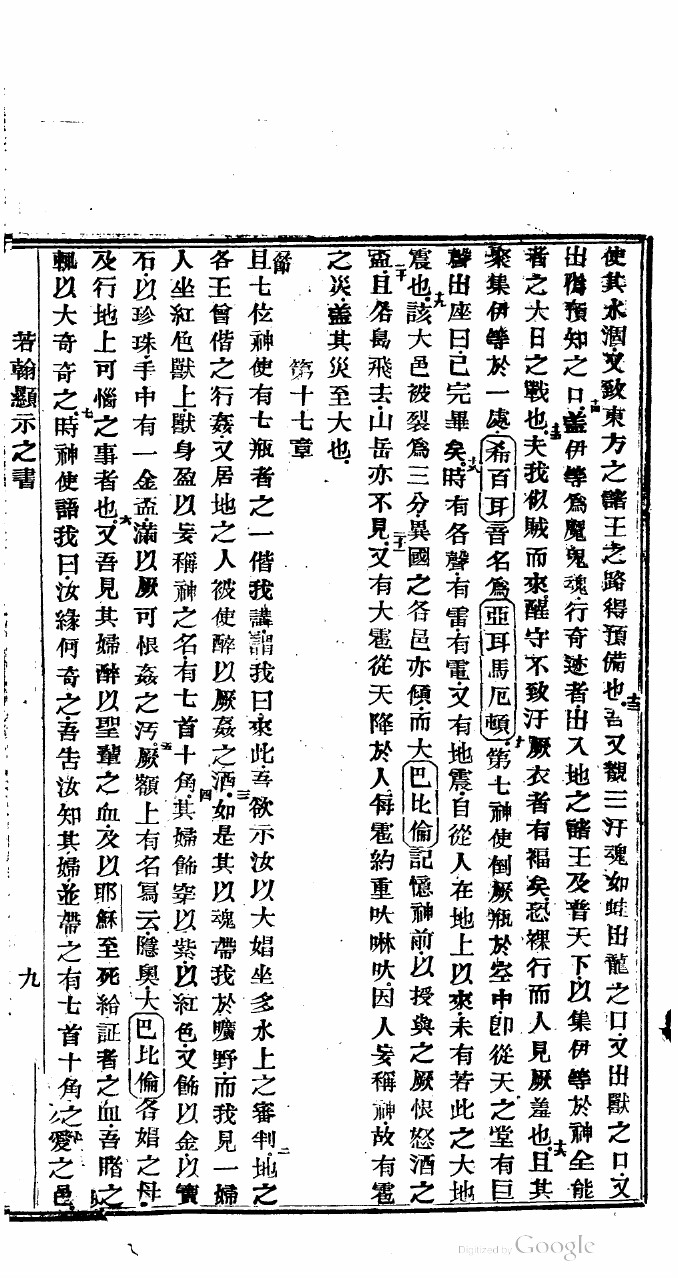 使其水涸又致東方之諸王之路得預備也十三吾又觀三汗魂如蛙出龍之口又出獸之口又
出僞預知之口十四蓋伊等爲魔鬼魂行奇迹者出入地之諸王及普天下以集伊等於神全能
者之大日之戰也十五夫我似賊而來醒守不致汗厥衣者有福矣恐裸行而人見厥羞也十六且其
聚集伊等於一處希百耳音名爲亞耳馬厄頓十七第七神使倒厥瓶於空中卽從天之堂有巨
聲出座曰已完畢矣十八時有各聲有雷有電又有地震自從人在地上以來未有若此之大地
震也十九該大邑被裂爲三分異國之各邑亦傾而大巴比倫記憶神前以授與之厥恨怒酒之
盃二十且各島飛去山岳亦不見二十一又有大雹從天降於人每雹約重吠啉吠因人妄稱神故有雹
之災蓋其災至大也
第十七章
一節且七位神使有七瓶者之一偕我講謂我曰來此吾欲示汝以大娼坐多水上之審判二地之
各王曾偕之行姦又居地之人被使醉以厥姦之酒三如是其以魂帶我於曠野而我見一婦
人坐紅色獸上獸身盈以妄稱神之名有七首十角四其婦飾穿以紫以紅色又飾以金以寶
石以珍珠手中有一金盃滿以厥可恨姦之汚五厥額上有名寫云隱奧大巴比倫各娼之母
及行地上可惱之事者也六又吾見其婦醉以聖輩之血及以耶穌至死給証者之血吾睹之
輒以大奇奇之七時神使語我曰汝緣何奇之吾吿汝知其婦並帶之有七首十角之愛之邑
若翰顯示之書
九
Digitized by Google